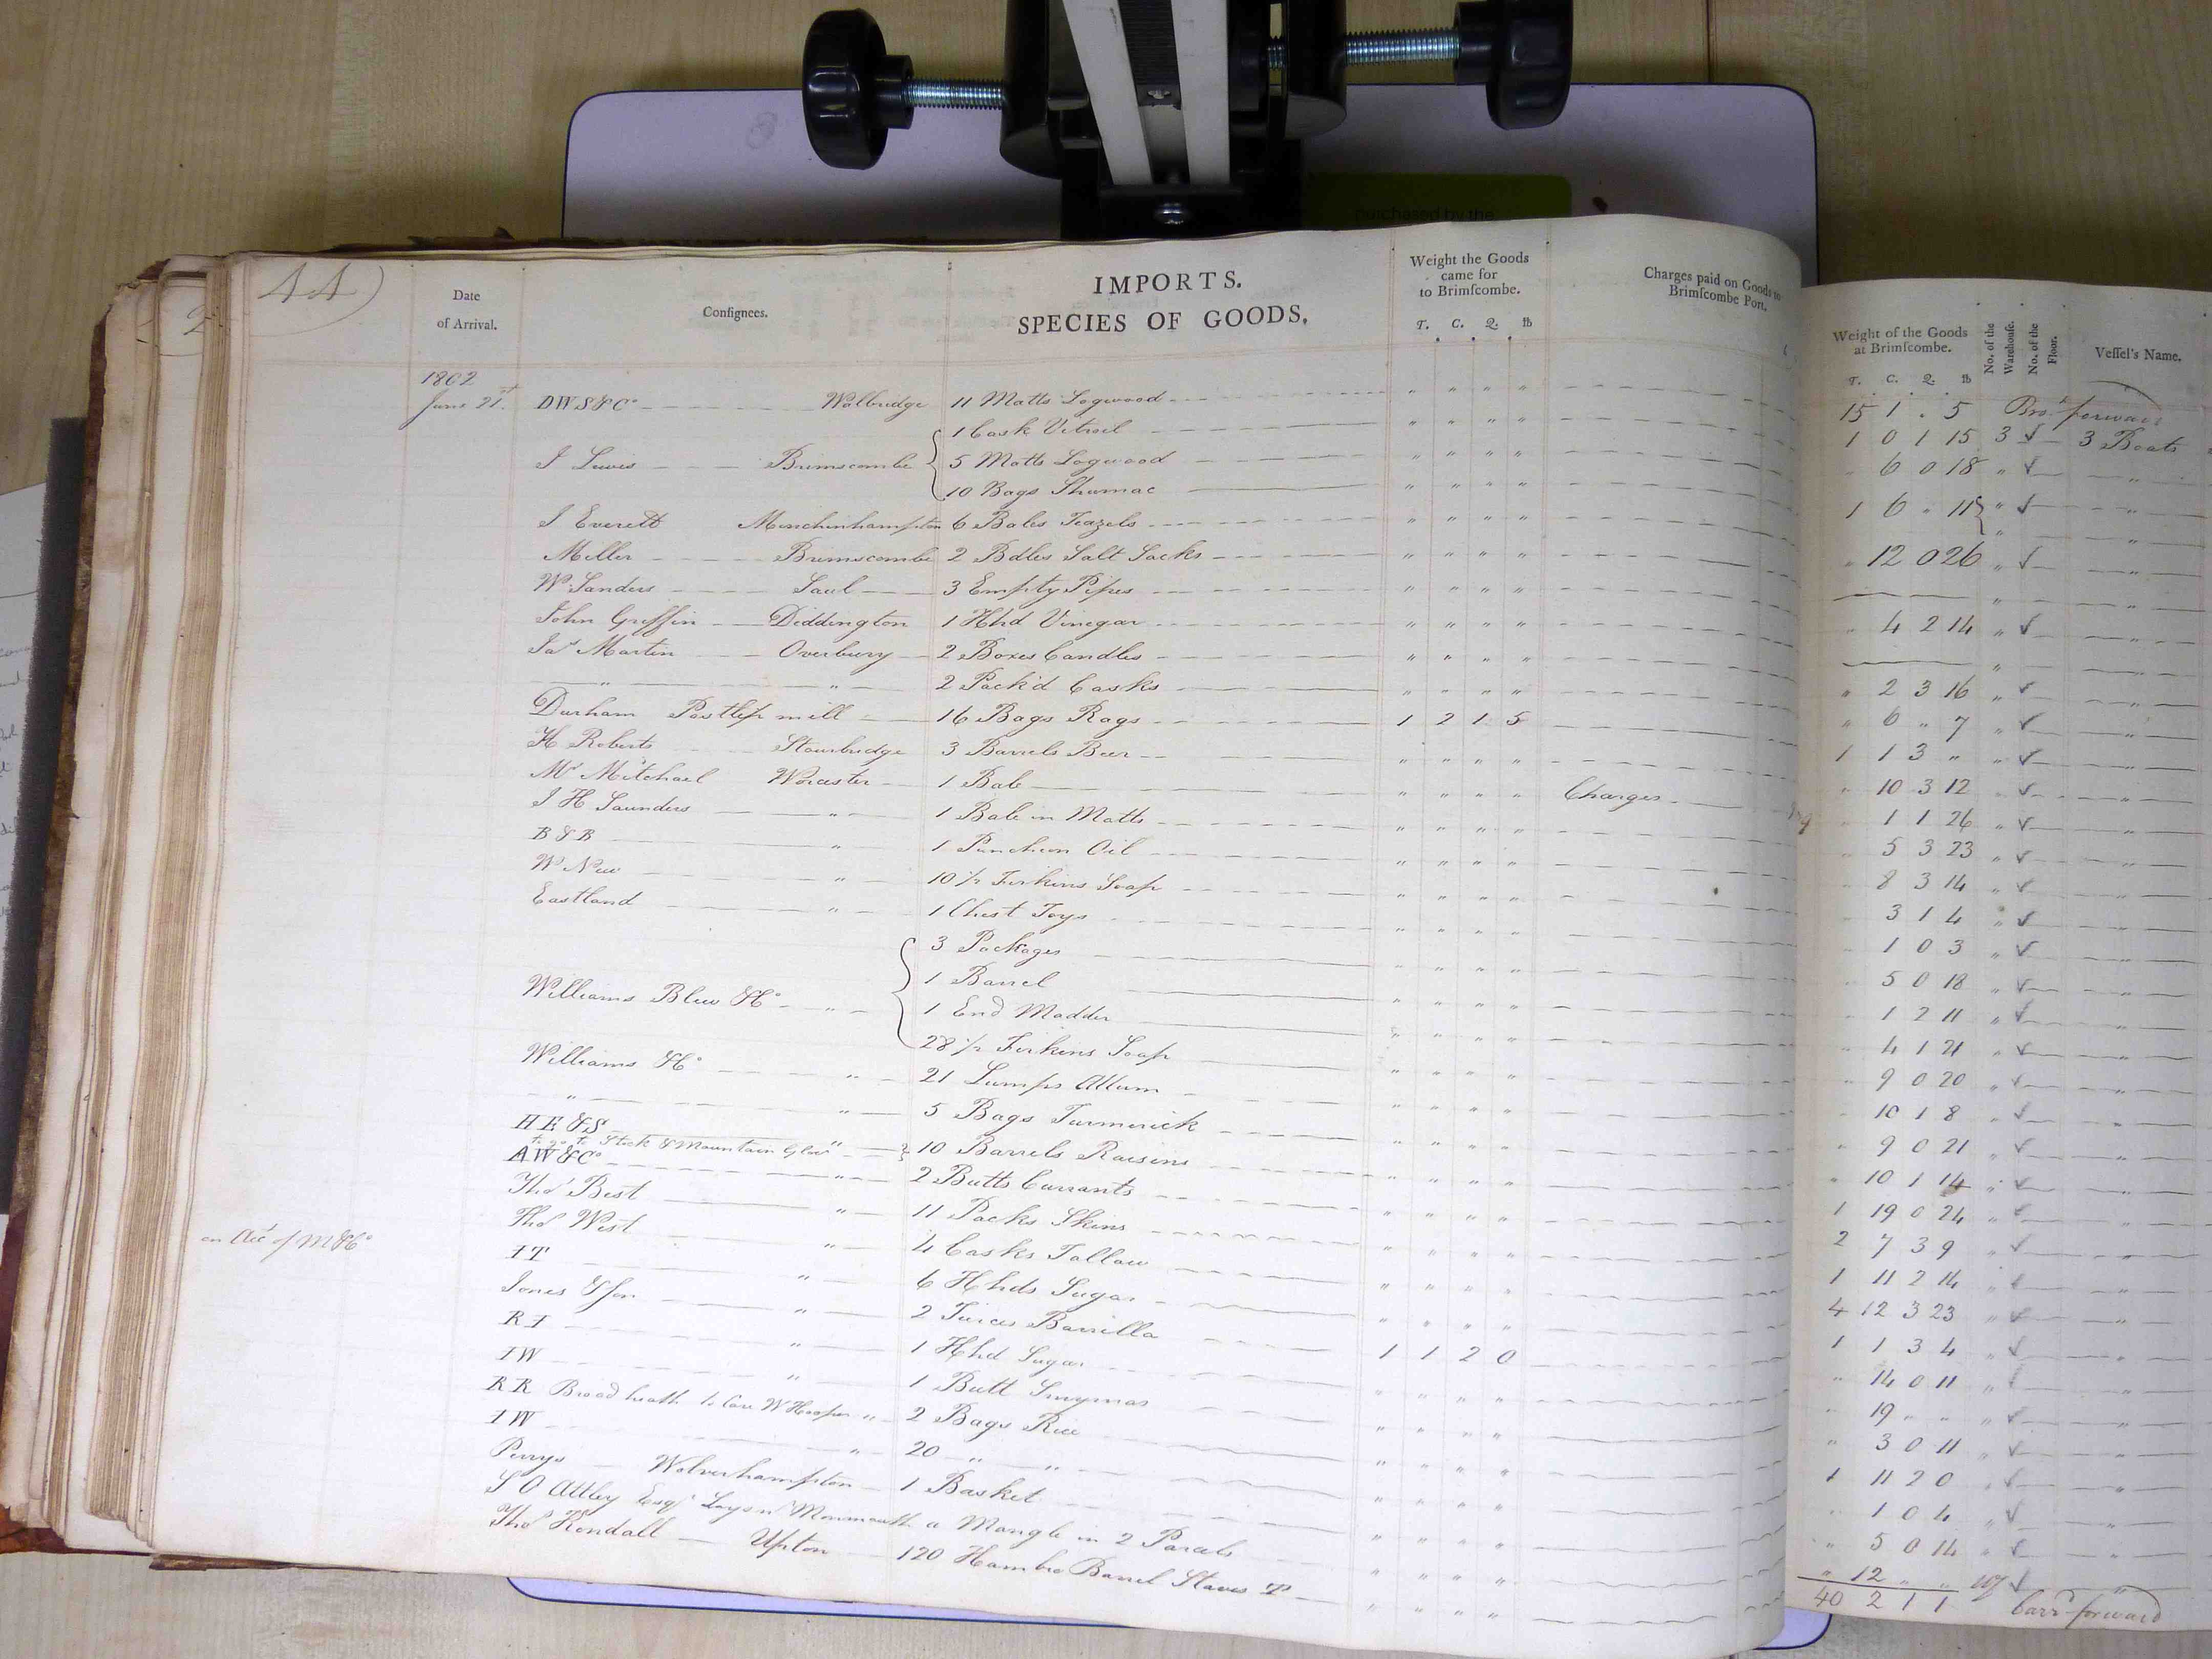 purchased by the
44)
Date of Arrival.
Consignees.
IMPORTS.
SPECIES OF GOODS.
Weight the Goods came for to Brimſcombe.
T. C. Q. lb
Charges paid on Goods to Brimſcombe Port.
Weight of the Goods at Brimſcombe.
T. C. Q. lb
No. of the Warehouse.
No. of the Floor.
Veſſel's Name.
1802
15 1 . 5 Bro.t forward
June 21st DWS&Co Walbridge 11 Matts Logwood 1 0 1 15 3 ✓ 3 Boats
1 Cask Vitroil " 6 0 18 " ✓ "
I Lewis Brimscombe 5 Matts Logwood 1 6 " 11 " ✓ "
10 Bags Shumac " "
I Everett Minchinhampton 6 Bales Teazels " 12 0 26 " ✓ "
Miller Brimscombe 2 Bdles Salt Sacks " "
W Sanders Saul 3 Empty Pipes " 4 2 14 " ✓ "
John Griffin Diddington 1 Hhd Vinegar
Jas Martin Overbury 2 Boxes Candles " 2 3 16 " ✓
" " 2 Pack'd Casks " 6 " 7 " ✓ "
Durham Postlip mill 16 Bags Rags 1 2 1 5 1 1 3 " " ✓ "
H Roberts Stourbridge 3 Barrels Beer " 10 3 12 " ✓ "
Mr Mitchael Worcester 1 Bale Charges " 1 1 26 " ✓ "
I H Saunders " 1 Bale in Matts " 5 3 23 " ✓ "
B&B " 1 Puncheon Oil " 8 3 14 " ✓ "
W New " 10 1/2 Firkins Soap " 3 1 4 " ✓ "
Eastland " 1 Chest Toys " 1 0 3 " ✓ "
3 Packages " 5 0 18 " ✓ "
Williams Blew &Co " 1 Barrel " 1 2 11 " ✓ "
1 End Madder " 4 1 21 " ✓ "
28 1/2 Firkins Soap " 9 0 20 " ✓ "
Williams &Co " 21 Lumps Allum " 10 1 8 " ✓ "
" " 5 Bags Turmerick " 9 0 21 " ✓ "
HE&S " 10 Barrels Raisins " 10 1 14 " ✓ "
to go to Stock & Mountain
AW&Co " 2 Butts Currants 1 19 0 24 " ✓ "
Thos Best " 11 Packs Skins 2 7 3 9 " ✓ "
Thos West " 4 Casks Tallow 1 11 2 14 " ✓ "
on Acct of M&Co IT " 6 Hhds Sugar 4 12 3 23 " ✓ "
Jones & Son " 2 Tierces Barrilla 1 1 3 4 " ✓ "
RI " 1 Hhd Sugar 1 1 2 0 " 14 0 11 " ✓ "
IW " 1 Butt Smyrnas " 19 " " " ✓ "
RR Broad heath to Care W Hooper " 2 Bags Rice " 3 0 11 " ✓ "
IW " 20 " " 1 11 2 0 " ✓ "
Perrys Wolverhampton 1 Basket " 1 0 4 " ✓ "
Attley Esqr Monmouth a Mangle in 2 Parcels " 5 0 14 " ✓ "
Thos Kendall Upton 120 Hambro Barrel Staves " 12 " " ✓ "
40 2 1 1 Carrd forward